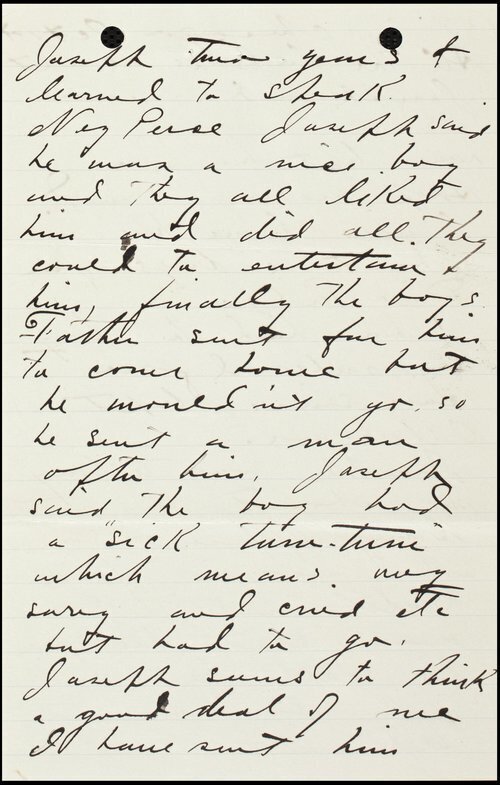 Joseph two years &
learned to speak
Nez Perse Joseph said
he was a nice boy
and they all liked
him and did all. they
could to entertain
him, finally the boys
Father sent for him
to come home but
he would n't go. so
he sent a man
after him. Joseph
said the boy had
a "sick tum-tum"
which means very
sorry and cried etc
but had to go.
Joseph seems to think
a good deal of me
I have sent him